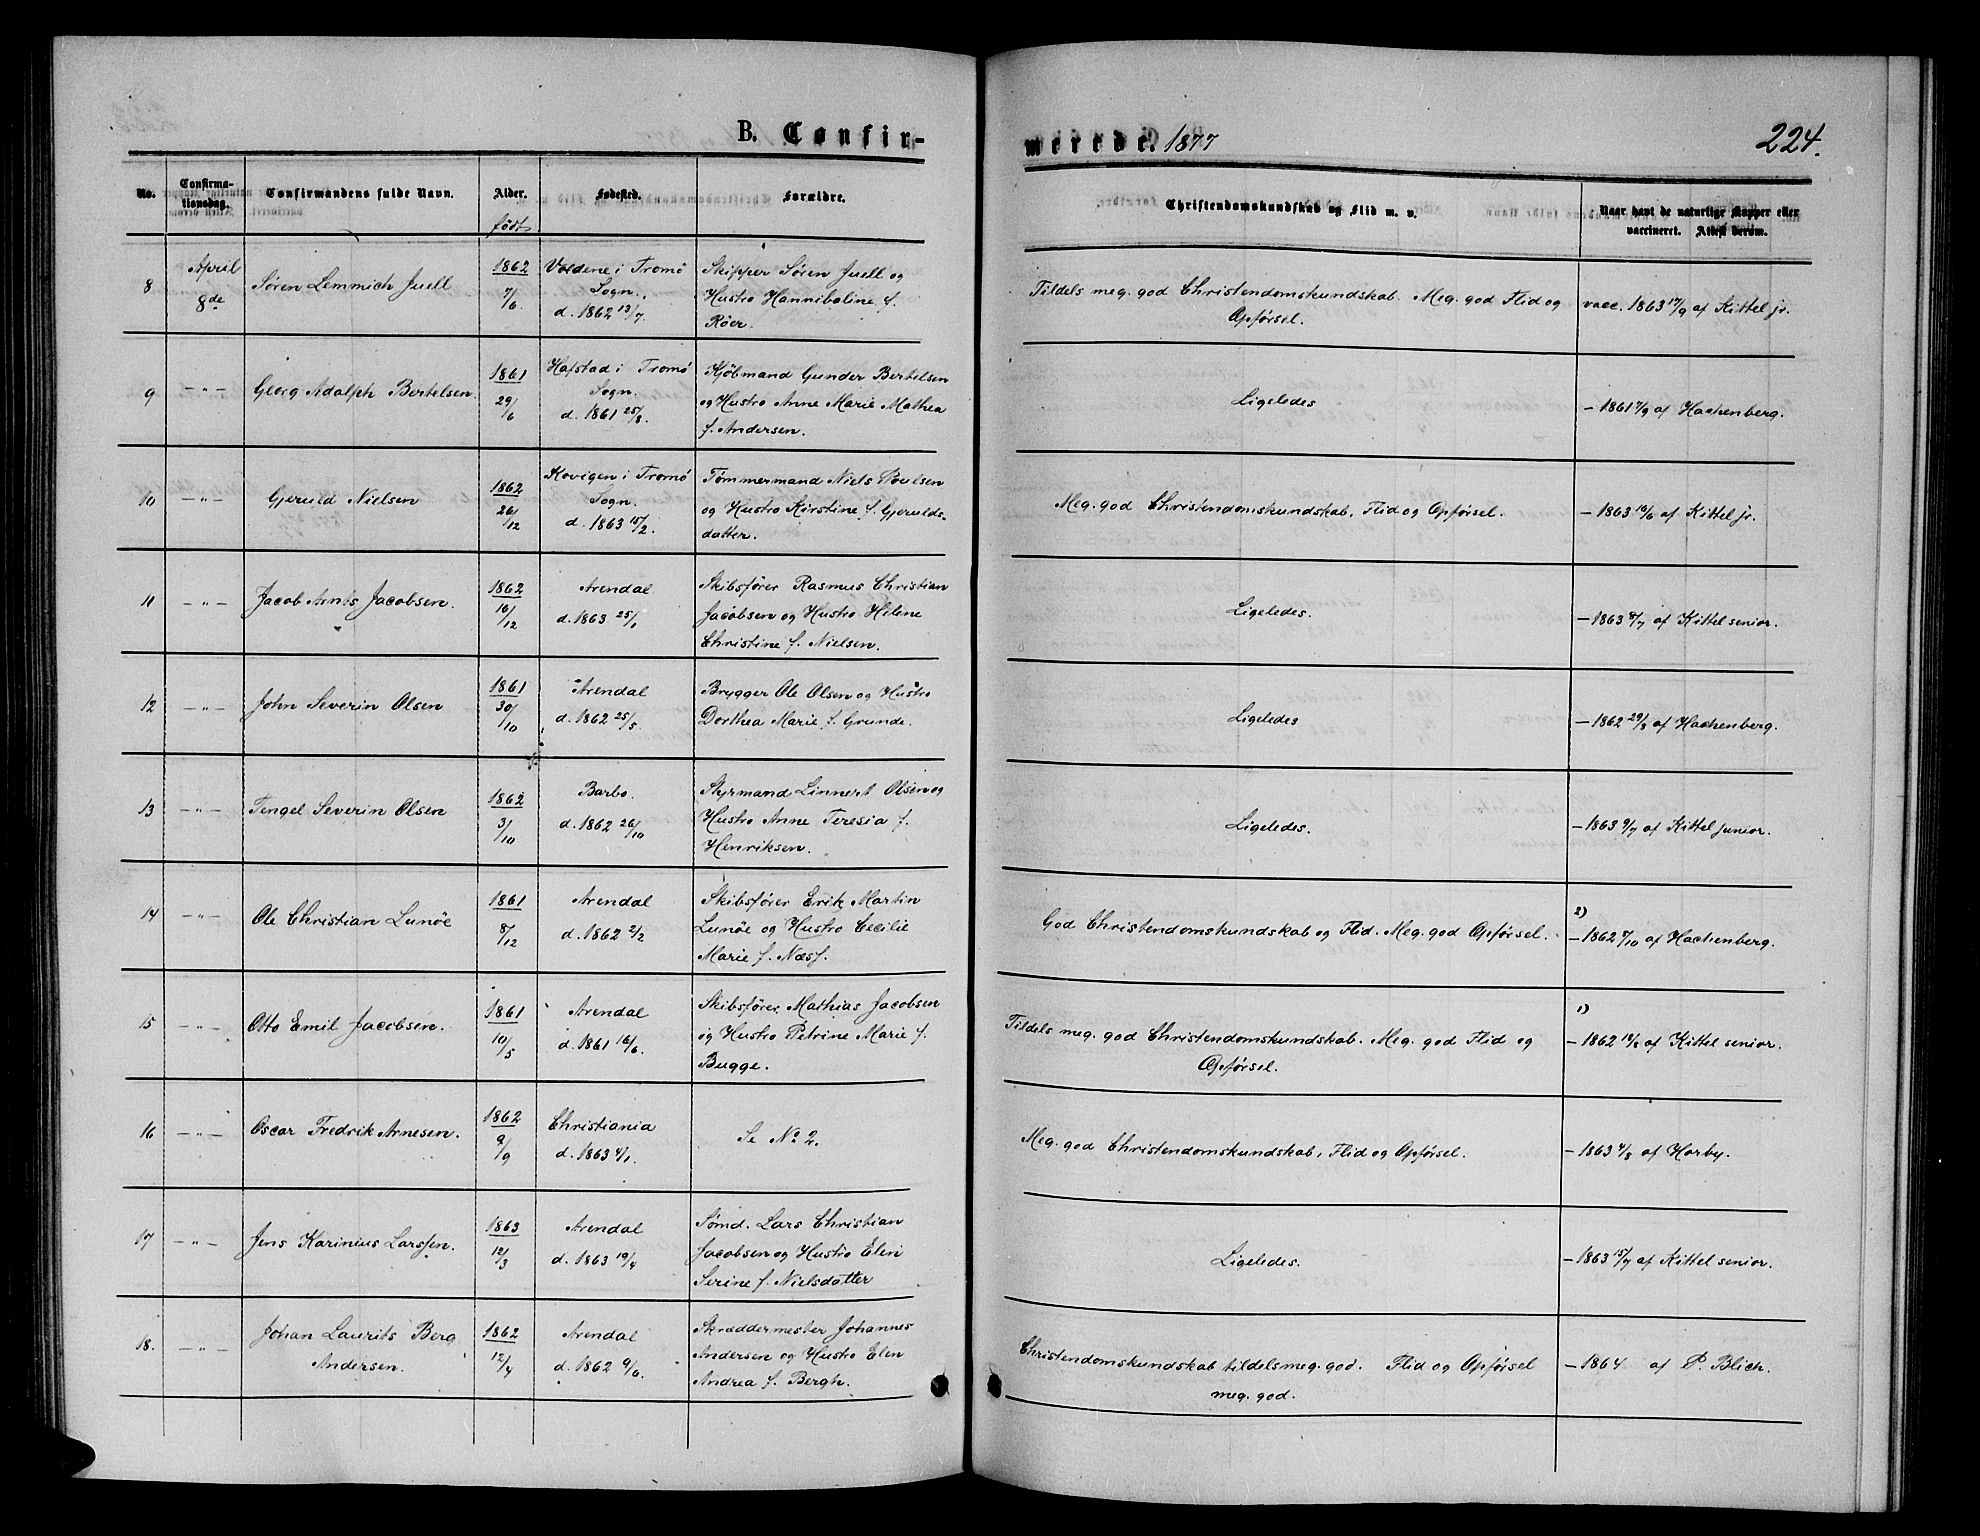 B. Confir-
merede. 1877
224.
No.
Confirma-
tionsdag.
Confirmandens fulde Navn.
Alder.
født
Fødested.
Forældre.
Christendomskundskab og Flid m. v.
Naar havt de naturlige Kopper eller
vaccineret. Attest derom.
8
April
8de
Søren Lemmich Juell
1862
7/6
Voldene i Tromø
Sogn.
d. 1862 13/7.
Skipper Søren Juell og
Hustro Hannibaline f.
Röer.
Tildels meg. god Christendomskundskab. Meg. god Flid og
Opførsel.
vacc. 1863 17/9 af Kittel jr.
9
— " —
Georg Adolph Bertelsen.
1861
29/6
Hafstad i Tromø
Sogn.
d. 1861 25/8.
Kjöbmand Gunder Bertelsen
og Hustro Anne Marie Mathea
f. Andersen.
Ligeledes
— 1861 7/9 af Hachenberg.
10
— " —
Gjeruld Nielsen
1862
26/12
Kovigen i Tromø
Sogn.
d. 1863 15/2.
Tømmermand Niels Poulsen
og Hustro Kirstine f. Gjerulds-
datter.
Meg. god Christendomskundskab, Flid og Opførsel.
— 1863 19/6 af Kittel jr.
11
— " —
Jacob Arnts Jacobsen.
1862
16/12
Arendal
d. 1863 25/1
Skibsfører Rasmus Christian
Jacobsen og Hustro Helene
Christine f. Nielsen.
Ligeledes.
— 1863 8/7 af Kittel senior.
12
— " —
John Severin Olsen
1861
30/10
Arendal
d. 1862 25/5.
Brygger Ole Olsen og Hustro
Dorthea Marie f. Grunde.
Ligeledes
— 1862 29/8 af Hachenberg.
13
— " —
Tengel Severin Olsen
1862
3/10
Barbo.
d. 1862 26/10
Styrmand Linnert Olsen og
Hustro Anne Teresia f.
Henriksen.
Ligeledes.
— 1863 9/7 af Kittel junior.
14
— " —
Ole Christian Lunöe
1861
8/12
Arendal
d. 1862 2/2
Skibsfører Erik Martin
Lunöe og Hustro Cecilie
Marie f. Næsf.
God Christendomskundskab og Flid. Meg. god Opførsel.
2)
— 1862 7/10 af Hachenberg.
15
— " —
Otto Emil Jacobsen.
1861
10/5
Arendal
d. 1861 16/6.
Skibsfører Mathias Jacobsen
og Hustro Petrine Marie f.
Bugge.
Tildels meg. god Christendomskundskab. Meg. god Flid og
Opførsel.
1)
— 1862 14/8 af Kittel senior.
16
— " —
Oscar Fredrik Arnesen.
1862
9/9
Christiania
d. 1863 4/1.
Se No 2.
Meg. god Christendomskundskab, Flid og Opførsel.
— 1863 4/8 af Horby.
17
— " —
Jens Karinius Larssen.
1863
12/3
Arendal
d. 1863 19/4
Sømd. Lars Christian
Jacobsen og Hustro Elen
Serine f. Nielsdatter
Ligeledes.
— 1863 15/7 af Kittel senior.
18.
— " —
Johan Laurits Berg
Andersen.
1862
12/4
Arendal
d. 1862 9/6.
Skræddermester Johannes
Andersen og Hustro Elen
Andrea f. Bergh.
Christendomskundskab tildels meg. god. Flid og Opførsel
meg. god.
— 1864 af P. Blich.